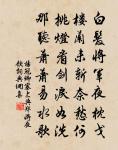 白髮將軍夜枕戈
樓蘭未斬奈愁何
挑燈看劍淚如洗
那聽蕭蕭易水歌